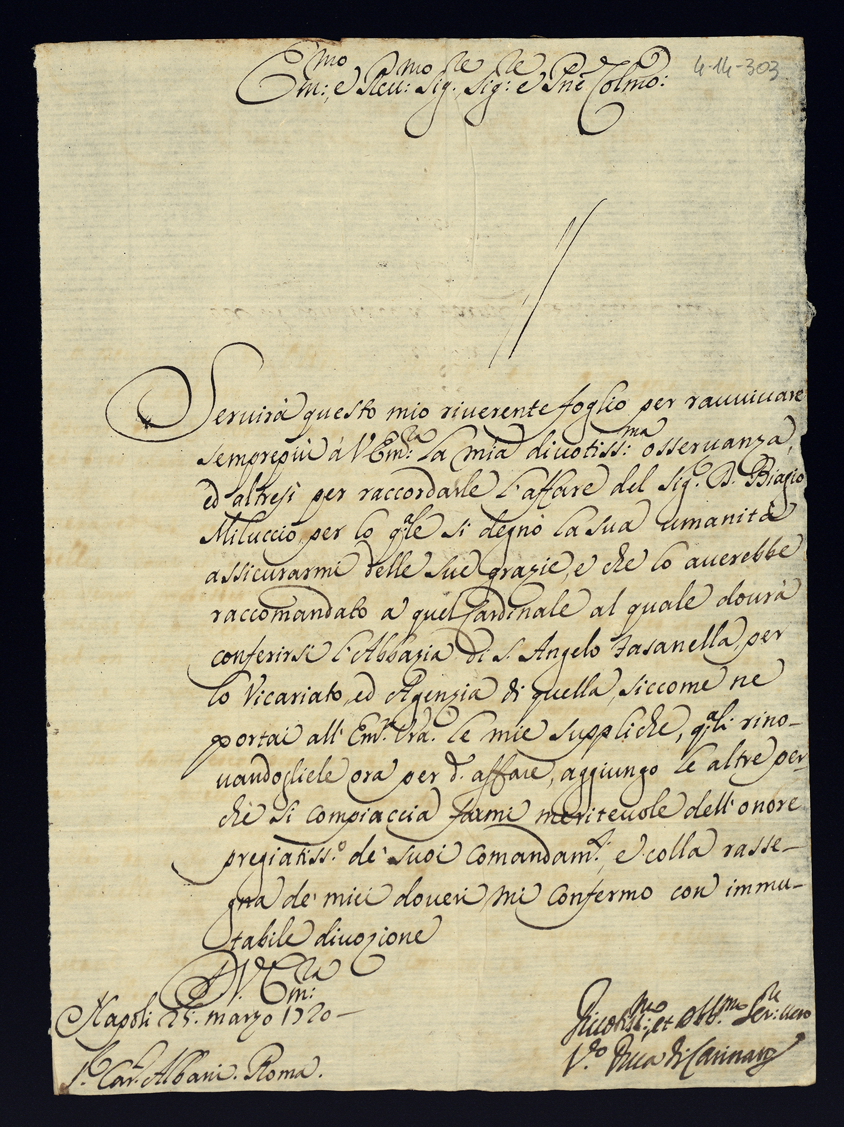 4-14-303
Em:mo e Reu:mo Sig:re Sig:re e Pne Colmo:
Seruirà questo mio riuerente foglio per rauuiuare
semprepiù à V Em:za la mia diuotiss:ma osseruanza,
ed altresì per raccordarle l'affare del Sig:r D. Biagio
Miluccio, per lo qle si degnò la sua umanità
assicurarmi delle sue grazie, e che lo auerebbe
raccomandato a quel Cardinale al quale dourà
conferirsi l'Abbazia di S. Angelo Fasanella, per
lo Vicariato, ed Agenzia di quella, siccome ne
portai all'Em:a Vra le mie suppliche, qli rino-
uandogliele ora per d.o affare, aggiungo le altre per-
chè si compiaccia farmi meriteuole dell'onore
pregiatiss:o de' suoi comandam:ti, e colla rasse-
gna de' miei doueri, mi confermo con immu-
tabile diuozione
D V. Em:za
Napoli 25. marzo 1720-
S.r Car.l Albani. Roma.
Diuotiss:mo et Obb:mo Ser:re uero
Il Duca di